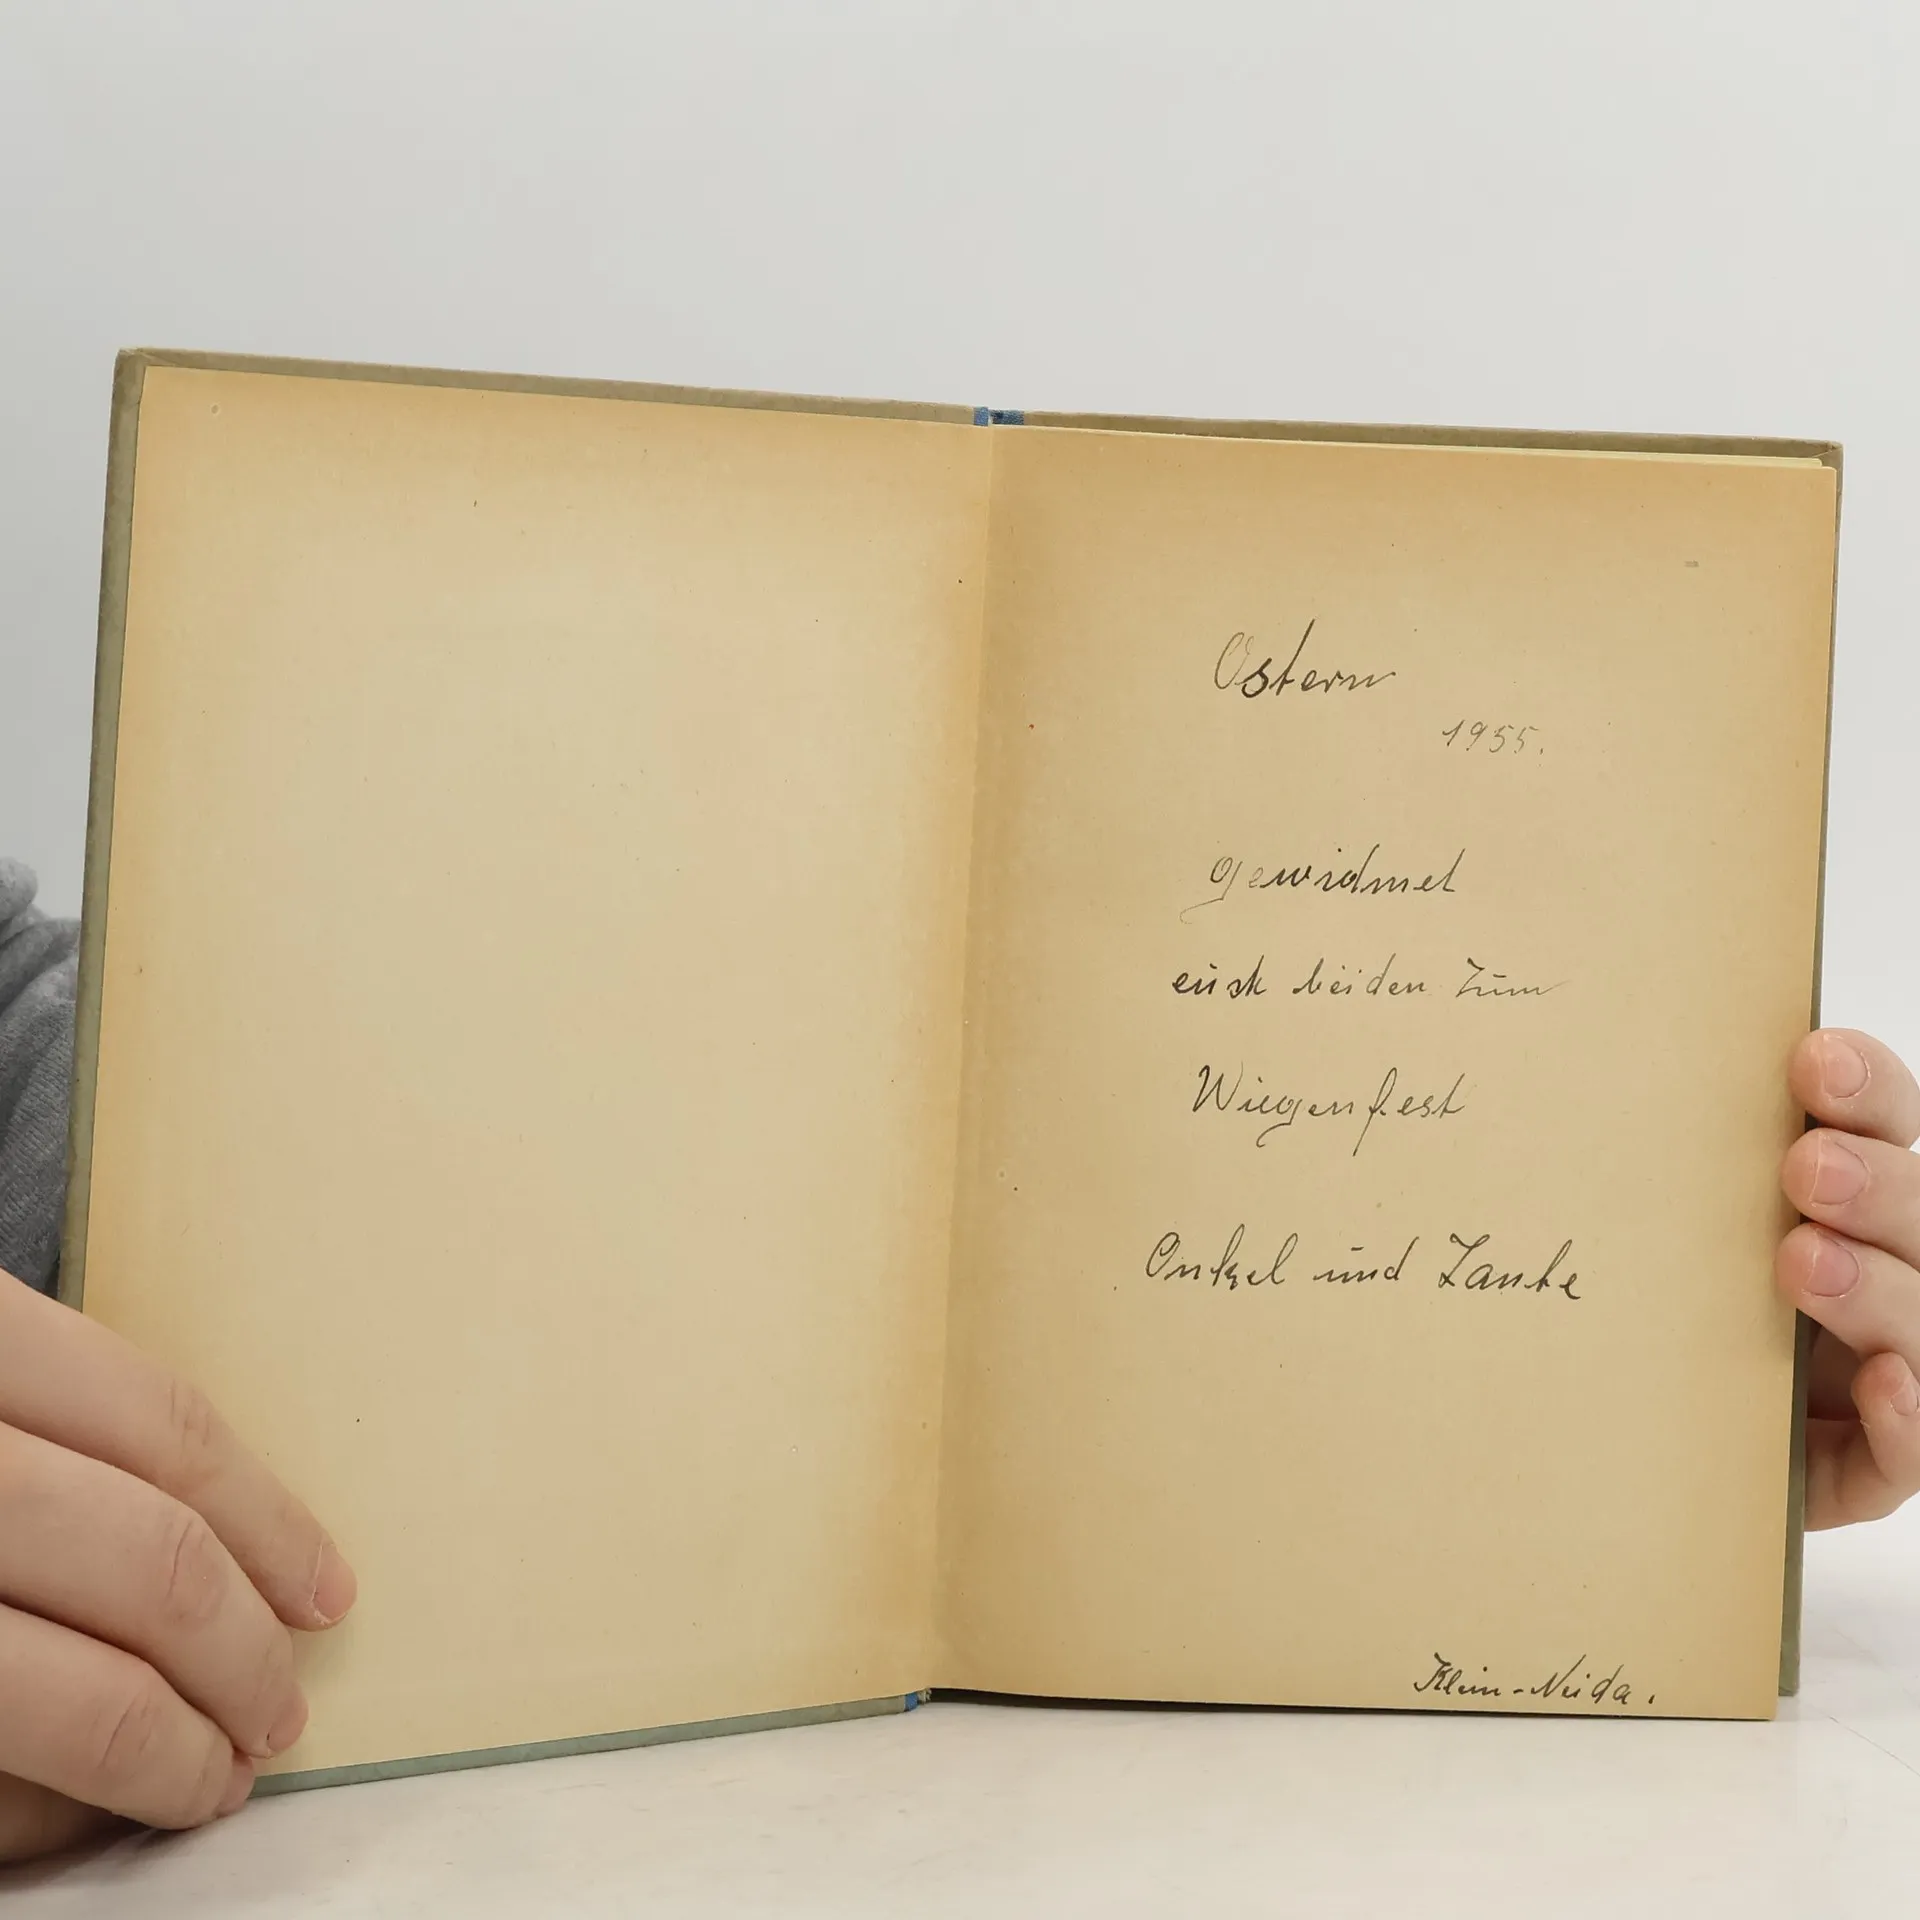 Ostern
1955.
gewidmet
euch beiden zum
Wiegenfest
Onkel und Tante
Klein-Neida.